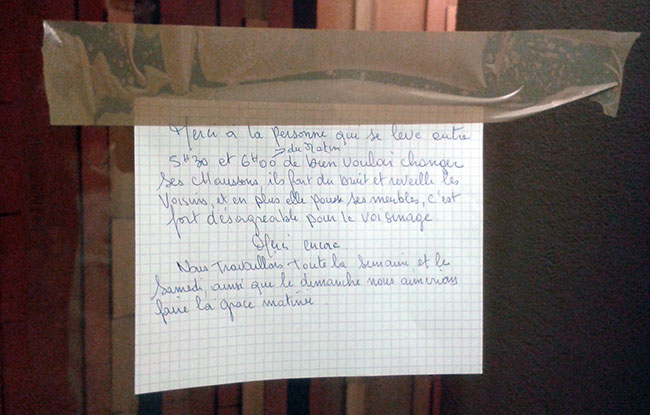 Merci a la personne qui se leve entre
du Matin
5H30 et 6H00 de bien vouloir changer
ses chaussons, ils font du bruit et reveille les
Voisins, et en plus elle pousse ses meubles, c'est
fort désagréable pour le voisinage.
Merci encore
Nous travaillons Toute la semaine et le
Samedi, ainsi que le dimanche nous aimerions
faire la grace matinée.